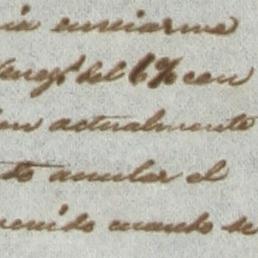 ia enviarme
del 6% con
an actualmente
to anular el
venido cuando se